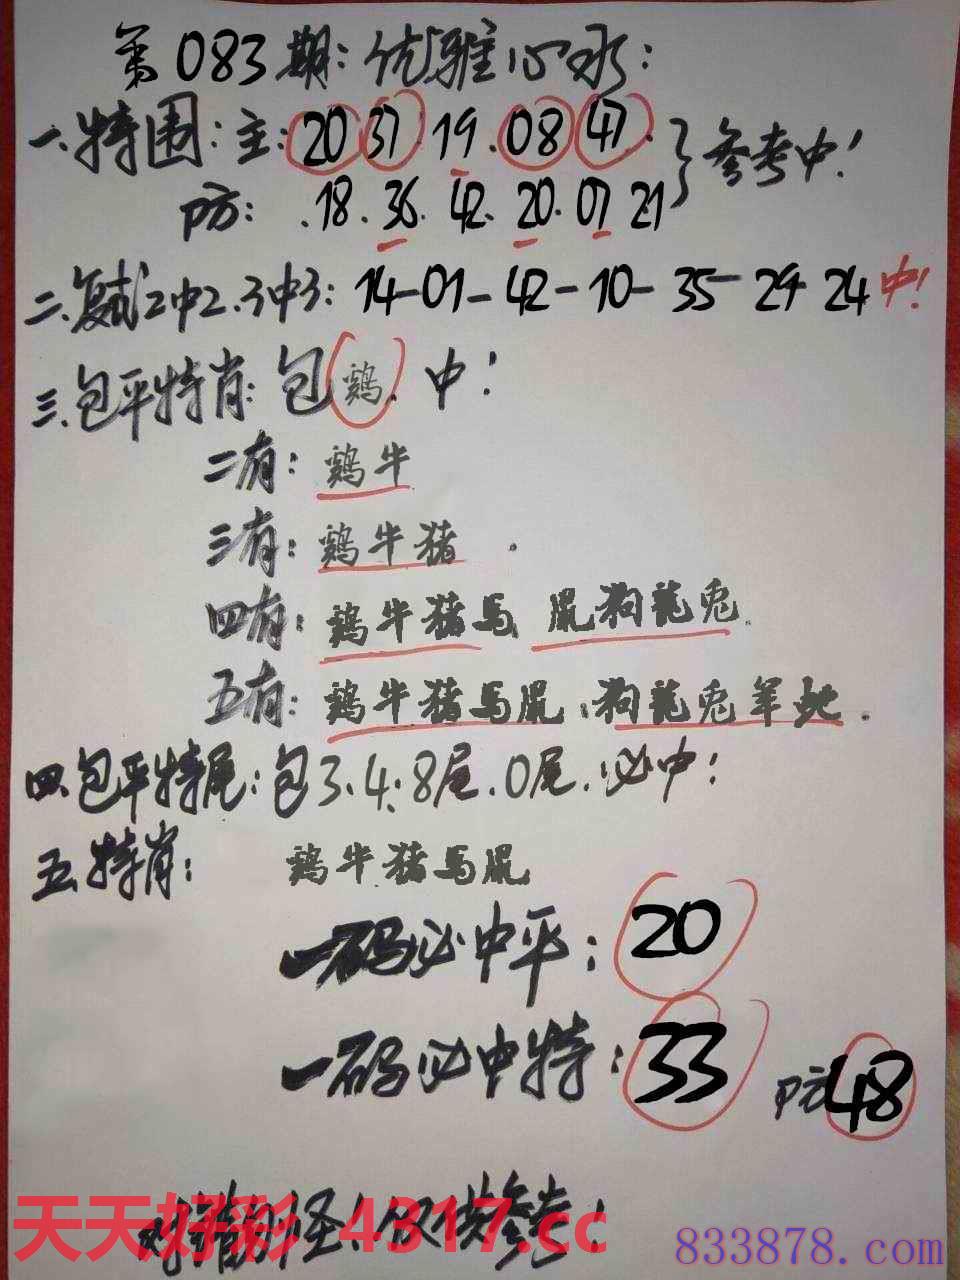 第083期:优雅心水:
一.特围:主:20 37 19.08 47.}参考中!
防:.18.36.42.20.07 21
二.复式2中2.3中3:14-01-42-10-35-29-24中!
三.包平特肖:包鷄.中!
二有:鷄牛
三有:鷄牛猪.
四有:鷄牛猪马 鼠狗龍兔.
五有:鷄牛猪马鼠:狗龍兔羊虵.
四.包平特尾:包3.4:8尾.0尾.必中!
五.特肖:鷄牛猪马鼠
一码必中平:20
一码必中特:33 防48
对错别怪!仅供参考!
天天好彩 4317.cc
833878.com